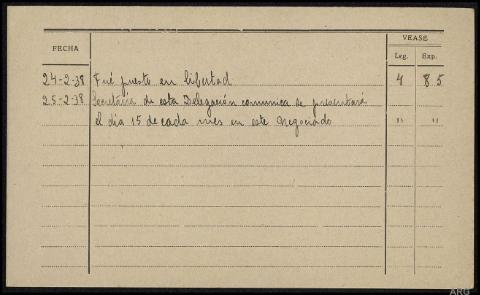 VEASE
FECHA
Leg. Exp.
24-2-38 Fué puesto en libertad 4 85
25-2-38 Secretaria de esta Delegación comunica se presentará
el dia 15 de cada mes en este Negociado " "
ARG